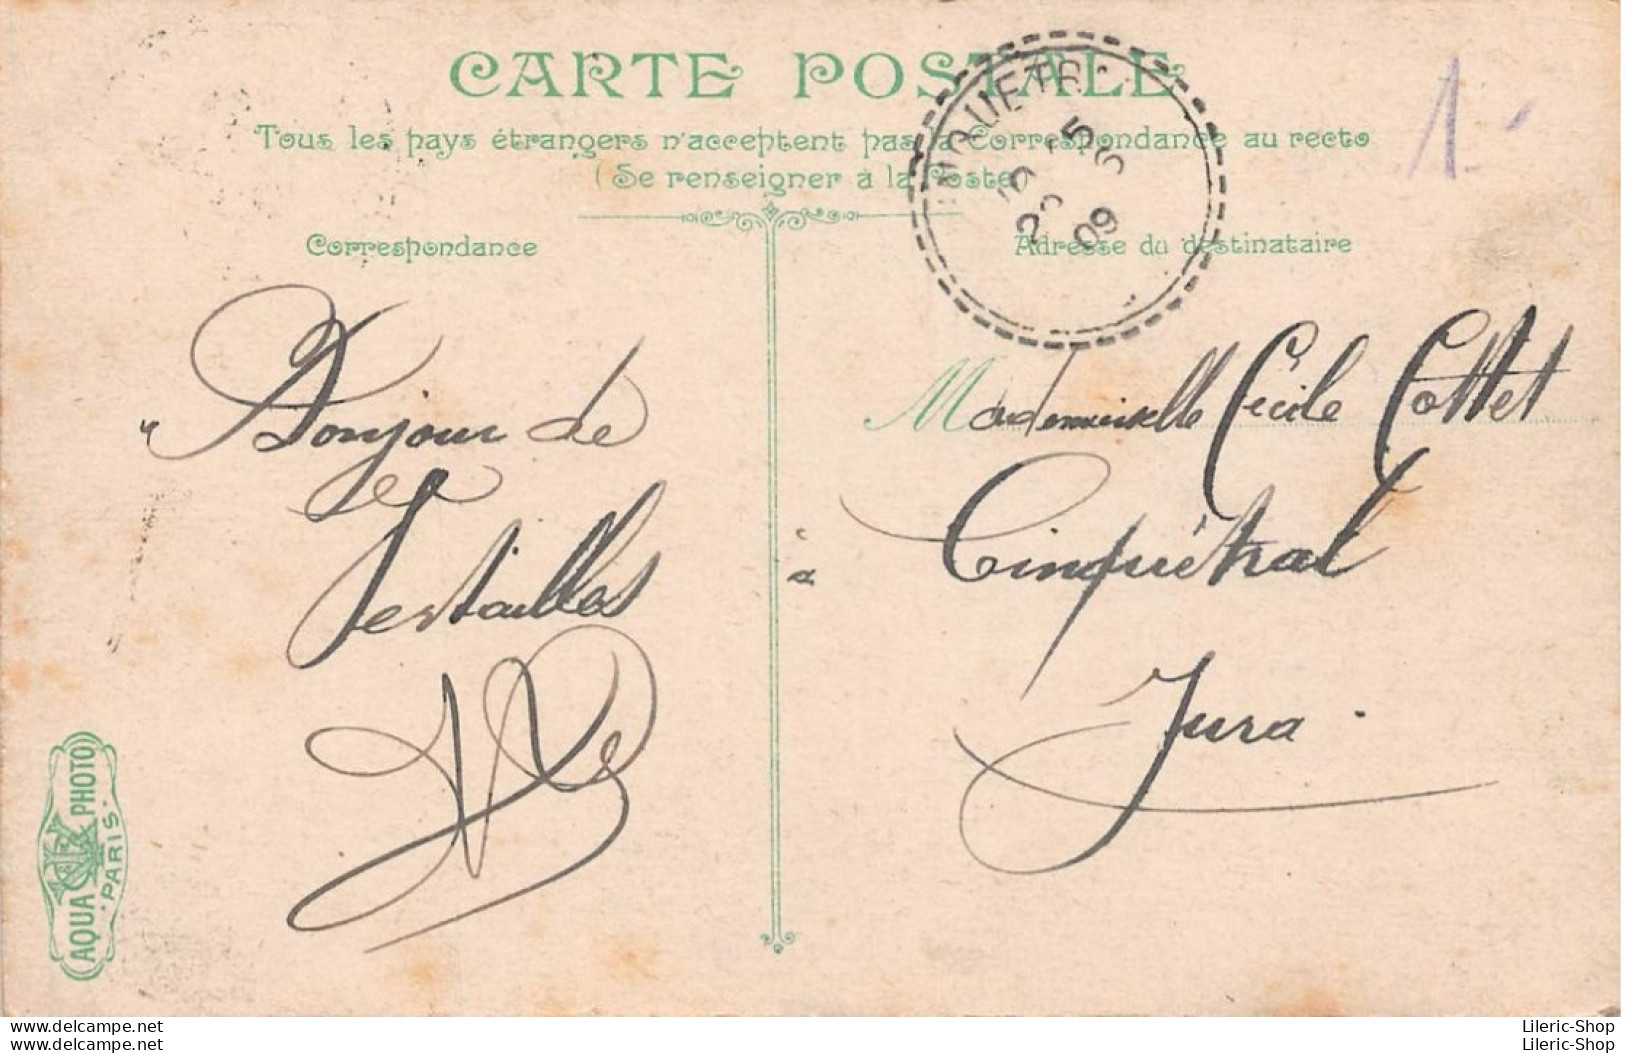 CARTE POSTALE
Tous les pays étrangers n'acceptent pas la Correspondance au recto
(Se renseigner à la Poste)
Correspondance
Adresse du destinataire
1
Bonjour de
Versailles
Mademoiselle Cécile Cottet
à Cinquétral
Jura.
5
09
AQUA PHOTO
PARIS
delcampe.net
delcampe.net
Lileric-Shop
Lileric-Shop